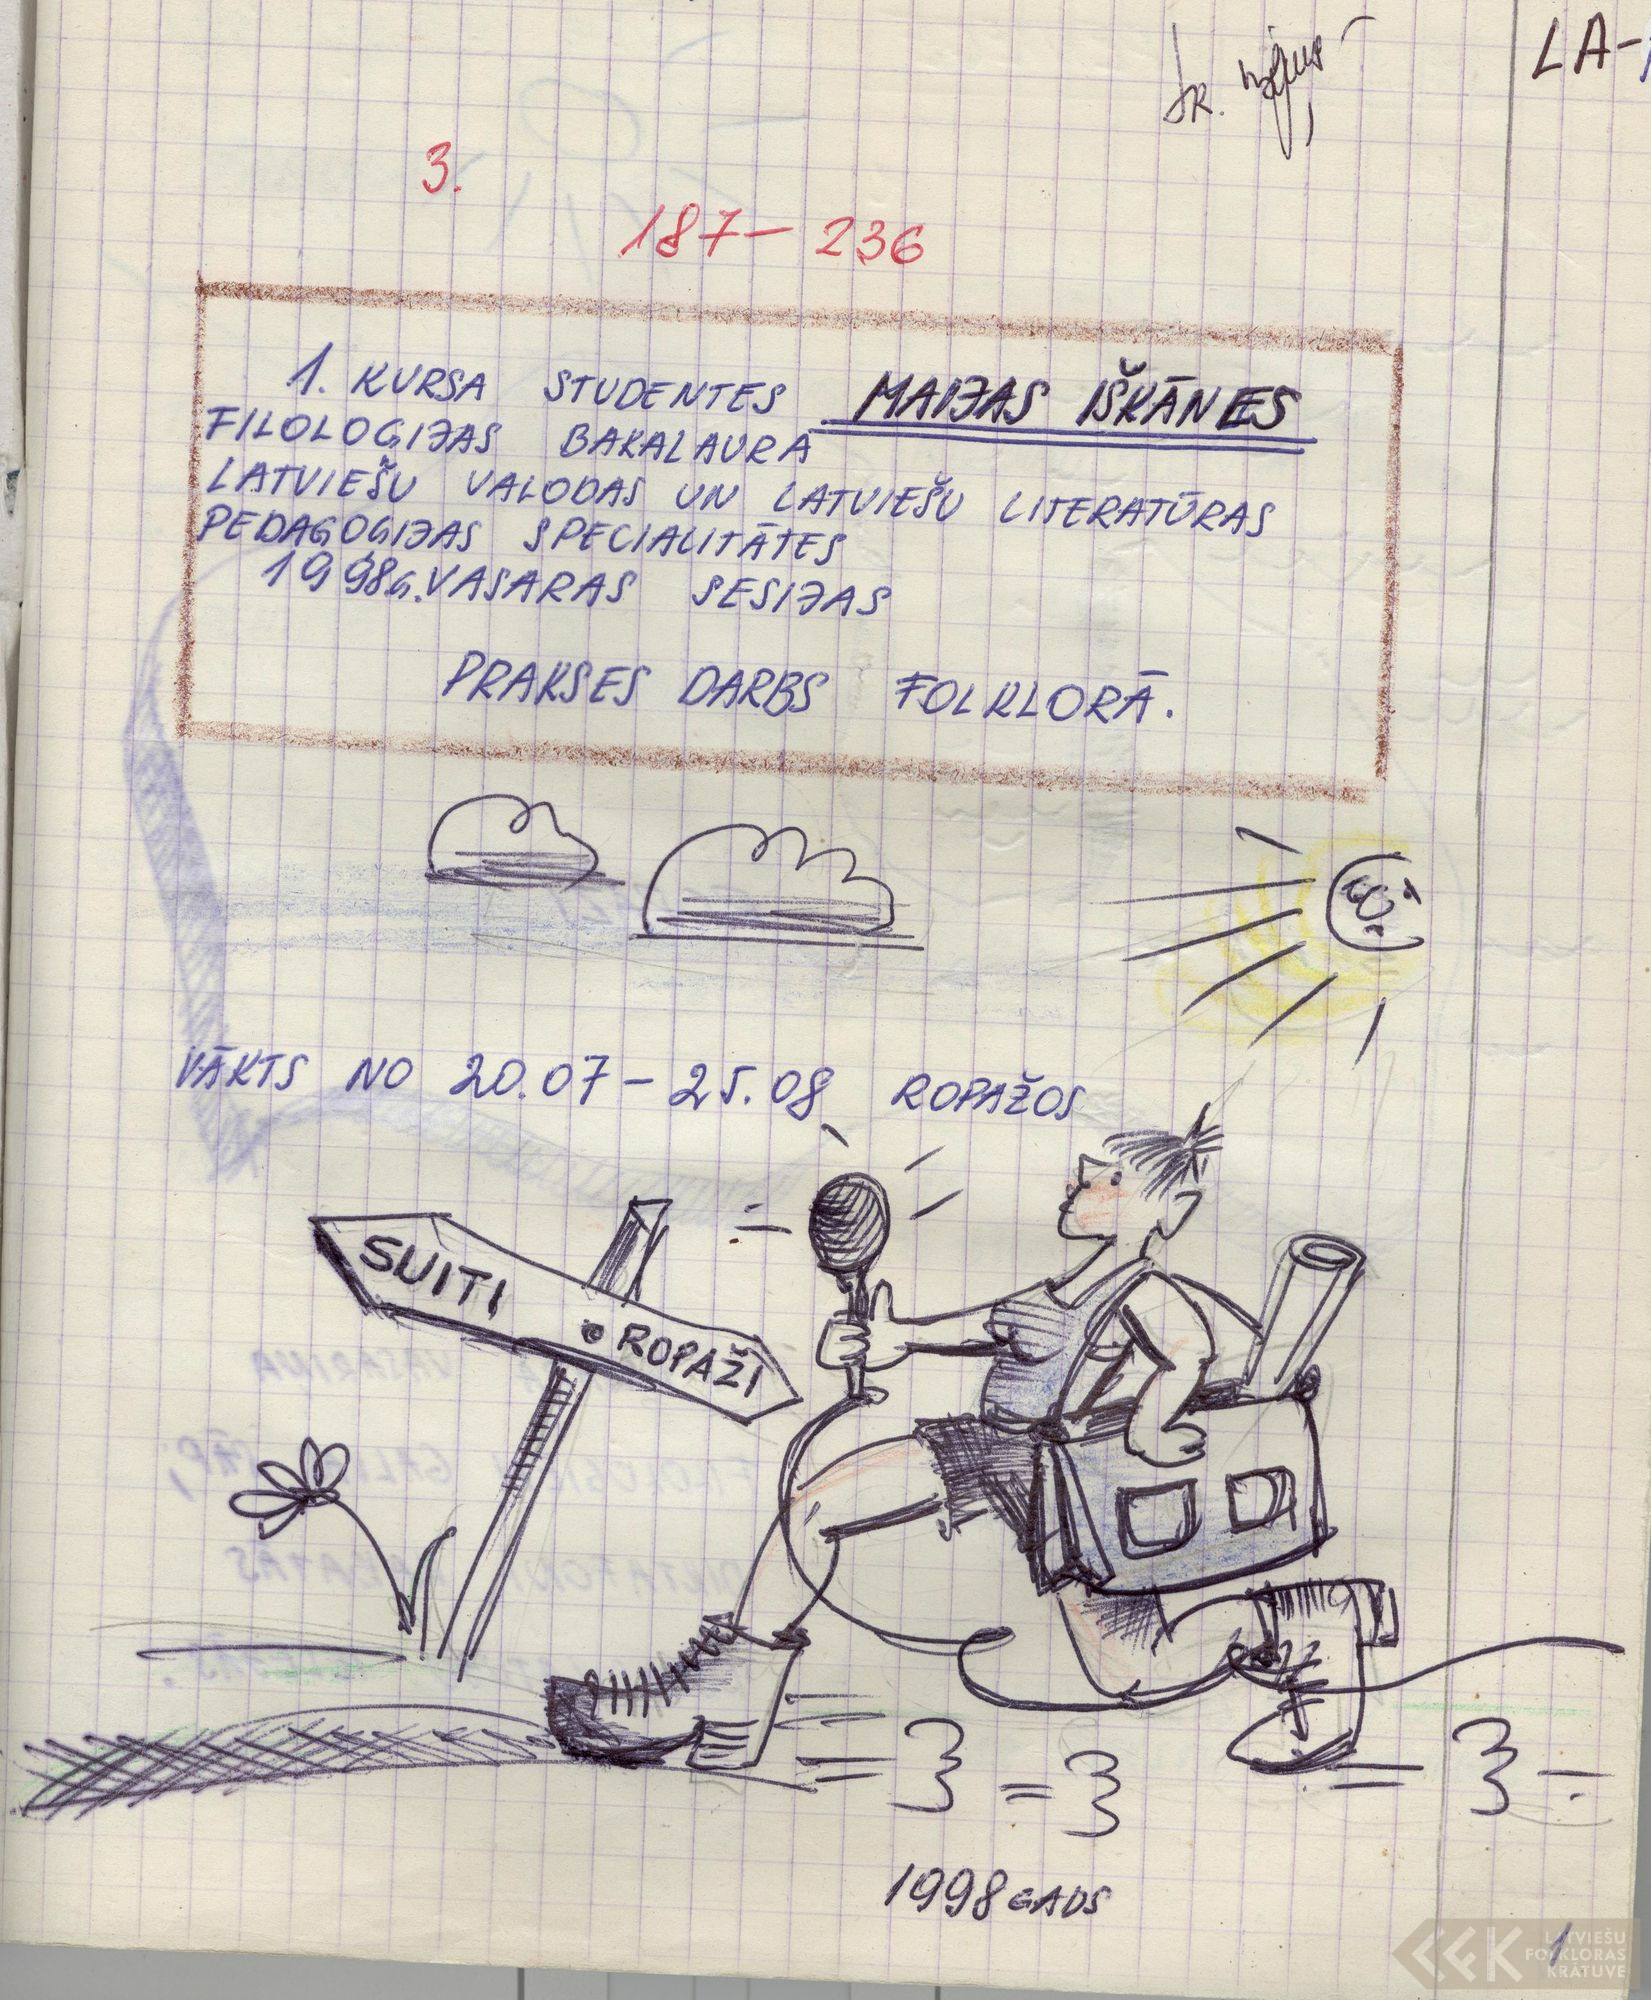 LA-
3.
187 - 236
1. KURSA STUDENTES MAIJAS IŠKĀNES
FILOLOĢIJAS BAKALAURA
LATVIEŠU VALODAS UN LATVIEŠU LITERATŪRAS
PEDAGOĢIJAS SPECIALITĀTES
1998G. VASARAS SESIJAS
PRAKSES DARBS FOLKLORĀ.
VĀKTS NO 20.07 - 25.08 ROPAŽOS
SUITI
ROPAŽI
= 3 = 3 = 3 =
1998 GADS
1
LATVIEŠU
FOLKLORAS
KRĀTUVE